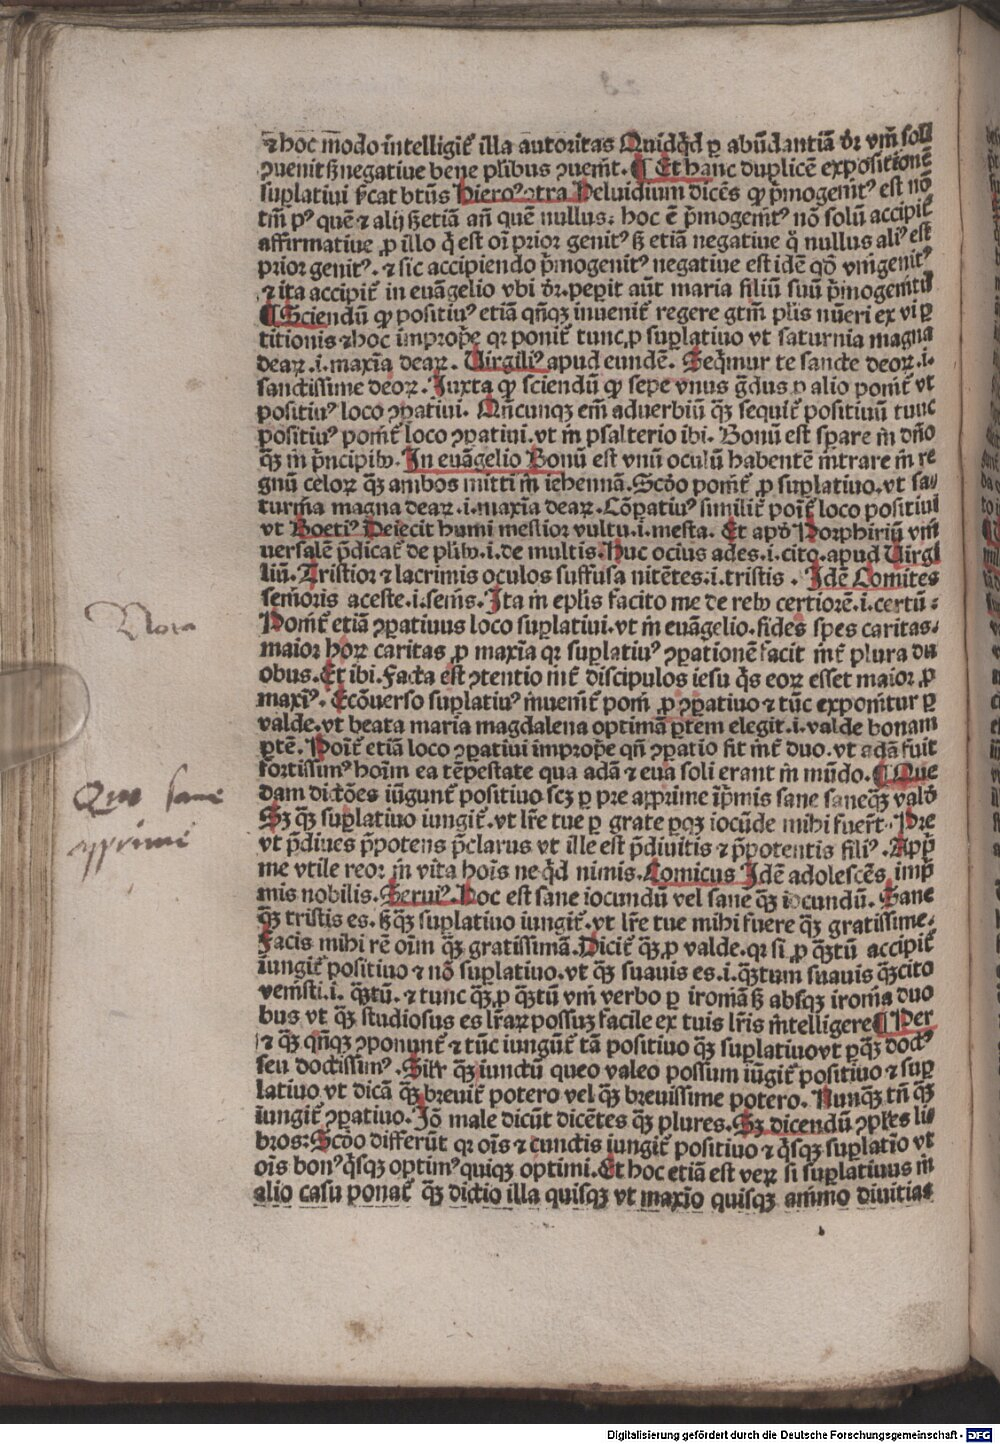 ⁊ hoc mōdo intelligit᷑ illa autoritas Quidq̄d ꝑ abūdantiā dr̄ vni̅ soli
ꝯuenit sꝫ negatiue bene plībus ꝯuen̄t. ¶ Et hanc duplicē expositionē
suplatiui ſcat btūs Hieroꝰ ꝯtra Heluidium dicēs ꝙ p̄mogenitꝰ est nō
tm̄ pꝰ quē ⁊ alij sꝫ etiā an̄ quē nullus. hoc ē p̄mogenitꝰ nō solū accipit᷑
affirmatiue ꝓ illo q̄ est oī prior genitꝰ sꝫ etiā negatiue qͦ nullus aliꝰ est
prior genitꝰ. ⁊ sic accipiendo p̄mogenitꝰ negatiue est idē qd̄ vnigenitꝰ
⁊ ita accipit᷑ in euāgelio vbi dr̄. peperit aūt maria filiū suū p̄mogenitū
¶ Sciendū ꝙ positiuꝰ etiā qn̄qꝫ inuenit᷑ regere gtm̄ plis nūeri ex vi ꝑ
titionis ⁊ hoc improp̄e qꝛ ponit᷑ tunc ꝓ suplatiuo vt saturnia magna
deaꝝ .i. maxīa deaꝝ. Uirgiliꝰ apud eundē. Seq̄mur te sancte deoꝝ .i.
sanctissime deoꝝ. Iuxta ꝙ sciendū ꝙ sepe vnus gdus ꝓ alio ponit᷑ vt
positiuꝰ loco ꝯpatiui. Qn̄cunqꝫ em̄ aduerbiū qꝫ sequit᷑ positiuū tunc
positiuꝰ ponit᷑ loco ꝯpatiui. vt in psalterio ibi. Bonū est spare in dn̄o
qꝫ in p̄ncipibꝰ. In euāgelio Bonū est vnū oculū habentē intrare in re
gnū celoꝝ qꝫ ambos mitti in iehennā. Scd̄o ponit᷑ ꝓ suplatiuo. vt sa⸗
turnia magna deaꝝ .i. maxīa deaꝝ. Cōpatiuꝰ similit᷑ poīt᷑ loco positiui
vt Boetiꝰ Deiecit humi mestior vultu .i. mesta. Et apd̄ Porphiriū vni
uersalē p̄dicat᷑ de plibꝰ .i. de multis. Huc ocius ades .i. cito. apud Uirgi
liū. Tristior ⁊ lacrimis oculos suffusa nitētes .i. tristis. Idē Comites
senioris aceste .i. senis. Ita in eplis facito me de rebꝰ certiorē .i. certū.
Ponit᷑ etiā ꝯpatiuus loco suplatiui. vt in euāgelio. fides spes caritas.
maior hoꝝ caritas ꝓ maxīa qꝛ suplatiuꝰ ꝯpationē facit int᷑ plura du
obus. Et ibi. Facta est ꝯtentio int᷑ discipulos iesu q̄s eoꝝ esset maior ꝓ
maxīꝰ. Ecōuerso suplatiuꝰ inuenit᷑ poni ꝓ ꝯpatiuo ⁊ tūc exponitur ꝑ
valde. vt beata maria magdalena optimā ꝑtem elegit .i. valde bonam
ꝑtē. Poīt᷑ etiā loco ꝯpatiui improp̄e qn̄ ꝯpatio fit int᷑ duo. vt adā fuit
fortissimꝰ hoīm ea tēpestate qua adā ⁊ eua soli erant in mūdo. ¶ Que
dam dictōes iūgunt᷑ positiuo scꝫ ꝑ pre apprime īp̄mis sane saneqꝫ vald̄
Sꝫ qꝫ suplatiuo iungit᷑. vt lr̄e tue ꝑ grate ꝑqꝫ iocūde mihi fuer̄t. Pre
vt p̄diues p̄potens p̄clarus vt ille est p̄diuitis ⁊ p̄potentis filiꝰ. App̄
me vtile reoꝛ in vita hoīs ne qd̄ nimis. Comicus Idē adolescēs imp̄
mis nobilis. Seruiꝰ. Hoc est sane iocundū vel sane qꝫ iocundū. Sane
qꝫ tristis es. sꝫ qꝫ suplatiuo iungit᷑. vt lr̄e tue mihi fuere qꝫ gratissime.
Facis mihi rē oīm qꝫ gratissimā. Dicit᷑ qꝫ ꝓ valde. qꝛ si ꝓ qꝫtū accipit᷑
iungit᷑ positiuo ⁊ nō suplatiuo. vt qꝫ suauis es .i. qꝫtum suauis qꝫcito
venisti .i. qꝫtū. ⁊ tunc qꝫ ꝓ qꝫtū vni verbo ꝑ ironiā sꝫ absqꝫ ironia duo
bus vt qꝫ studiosus es lr̄aꝝ possuꝫ facile ex tuis lr̄is intelligere ¶ Per
⁊ qꝫ qn̄qꝫ ꝯponunt᷑ ⁊ tūc iungūt᷑ tā positiuo qꝫ suplatiuo vt ꝑqꝫ doctꝰ
seu doctissimꝰ. Silr̄ qꝫ iunctū queo valeo possum iūgit᷑ positiuo ⁊ sup
latiuo vt dicā qꝫ breuit᷑ potero vel qꝫ breuissime potero. Nunqꝫ tn̄ qꝫ
iungit᷑ ꝯpatiuo. Iō male dicūt dicētes qꝫ plures. Sꝫ dicendū ꝯplēs li
bros: Scd̄o differūt qꝛ oīs ⁊ cunctis iungit᷑ positiuo ⁊ q̄sqꝫ suplatīo vt
oīs bonꝰ q̄sqꝫ optimꝰ quiqꝫ optimi. Et hoc etiā est veꝝ si suplatiuus in
alio casu ponat᷑ qꝫ dictio illa quisqꝫ vt maxīo quisqꝫ animo diuitias
Nota
Que sane
apprime
Digitalisierung gefördert durch die Deutsche Forschungsgemeinschaft - DFG